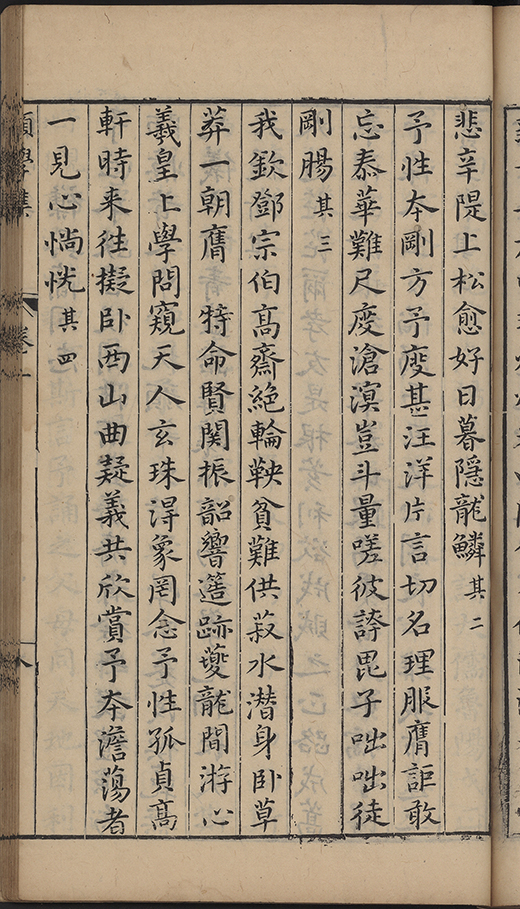 悲辛隄上松愈好日暮隱龍鱗其二
予性本剛方予度甚汪洋片言切名理服膺詎敢
忘泰華難尺度滄溟豈斗量嗟彼謗毘子咄咄徒
剛腸其三
我欽鄧宗伯高齋絕輪鞅貧難供菽水潛身臥草
莽一朝膺特命賢関振韶響簉跡夔龍間游心
羲皇上學問窺天人玄珠淂象罔念予性孤貞髙
軒時来徃擬卧西山曲疑義共欣賞予本澹蕩者
一見心惝恍其四
卷一
八